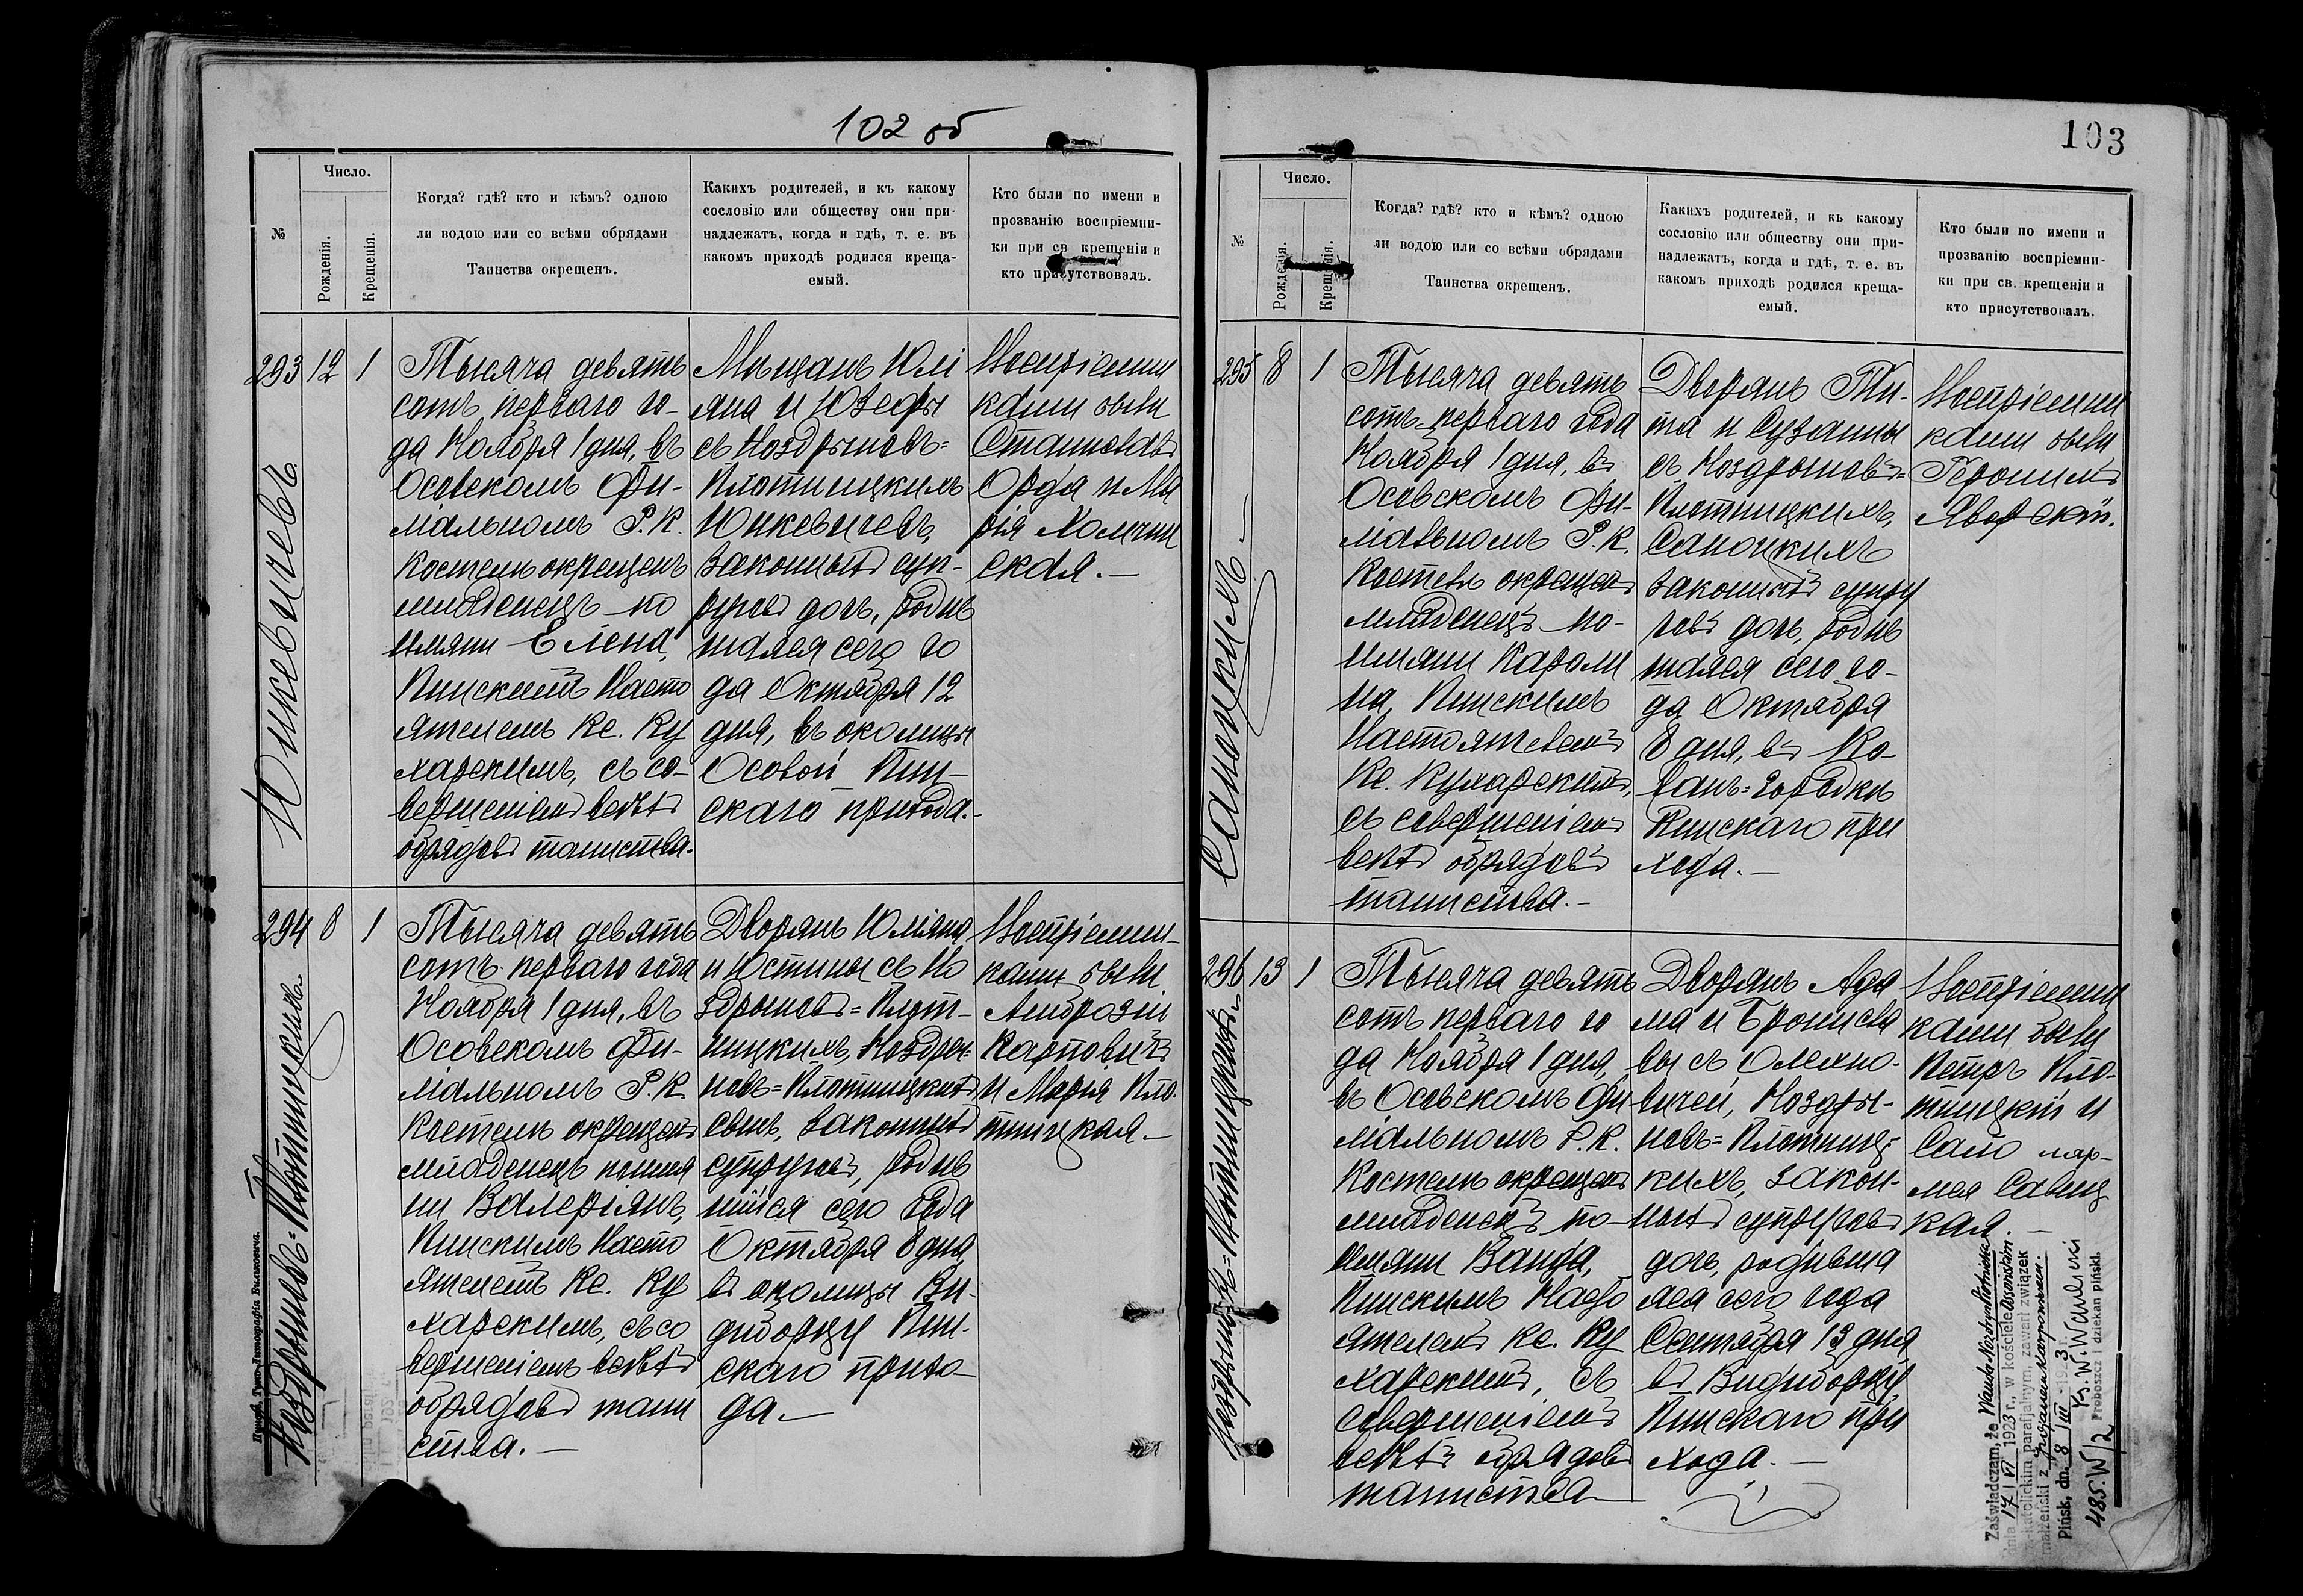 102 об
№
Число.
Рожденія.
Крещенія.
Когда? гдѣ? кто и кѣмъ? одною
ли водою или со всѣми обрядами
Таинства окрещенъ.
Какихъ родителей, и къ какому
сословію или обществу они при-
надлежатъ, когда и гдѣ, т. е. въ
какомъ приходѣ родился креща-
емый.
Кто были по имени и
прозванію воспріемни-
ки при св крещеніи и
кто присутствовалъ.
293 12 1
Юцкевичевъ
Тысяча девять
сотъ перваго го-
да Ноября 1 дня, въ
Осовскомъ Фи-
ліальномъ Р. К.
Костелѣ окрещенъ
младенецъ по
имяни Елена,
Пинскимъ Насто
ятелемъ Кс. Ку
харскимъ, съ со-
вершеніемъ всѣхъ
обрядовъ таинства.
Мѣщанъ Юлі
яна и Юзефы
съ Ноздрыновъ=
Плотницкихъ
Юцкевичевъ,
законныхъ суп-
руговъ дочь, родив
шаяся сего го
да Октября 12
дня, въ околицы
Осовой Пин-
скаго прихода.-
Воспріемни
ками были
Станиславъ
Орда и Ма
рія Холчин
ская.-
294 8 1
Ноздрыновъ=Плотницкихъ
Тысяча девять
сотъ перваго года
Ноября 1 дня, въ
Осовскомъ Фи-
ліальномъ Р. К.
Костелѣ окрещенъ
младенецъ поимя
ни Валеріянъ,
Пинскимъ Насто
ятелемъ Кс. Ку
харскимъ, съ со
вершеніемъ всѣхъ
обрядовъ таин
ства.-
Дворянъ Юліяна
и Юстины съ Но
здрыновъ=Плот-
ницкихъ, Ноздры-
новъ=Плотницкихъ
сынъ, законныхъ
супруговъ, родив
шійся сего года
Октября 8 дня
въ околицы Ви-
диборцу Пин-
скаго прихо-
да.-
Воспріемни-
ками были
Амброзій
Карповичъ
и Марія Пло-
тницкая.-
Тип-Литографія Вильковича.
103
№
Число.
Рожденія.
Крещенія.
Когда? гдѣ? кто и кѣмъ? одною
ли водою или со всѣми обрядами
Таинства окрещенъ.
Какихъ родителей, и къ какому
сословію или обществу они при-
надлежатъ, когда и гдѣ, т. е. въ
какомъ приходѣ родился креща-
емый.
Кто были по имени и
прозванію воспріемни-
ки при св. крещеніи и
кто присутствовалъ.
295 8 1
Саноцкихъ-
Тысяча девять
сотъ перваго года
Ноября 1 дня, въ
Осовскомъ Фи-
ліальномъ Р. К.
Костелѣ окрещенъ
младенецъ по-
имяни Кароли
на, Пинскимъ
Настоятелемъ
Кс. Кухарскимъ,
съ совершеніемъ
всѣхъ обрядовъ
таинства.-
Дворянъ Ти-
та и Сузанны
съ Ноздрыновъ=
Плотницкихъ,
Саноцкихъ
законныхъ супру
говъ дочь, родив
шаяся сего го-
да Октября
8 дня, въ Ко-
жанъ=Городкѣ
Пинскаго при
хода.-
Воспріемни
ками были
Геронимъ
Яворскій.
296 13 1
Ноздрыновъ=Плотницкихъ-
Тысяча девять
сотъ перваго го
да Ноября 1 дня,
въ Осовскомъ Фи
ліальномъ Р. К.
Костелѣ окрещенъ
младенецъ по-
имяни Ванда,
Пинскимъ Насто
ятелемъ Кс. Ку
харскимъ, съ
совершеніемъ
всѣхъ обрядовъ
таинства-
Дворянъ Ада
ма и Бронисла
вы съ Олехно-
вичей, Ноздры-
новъ=Плотниц-
кихъ, закон-
ныхъ супруговъ
дочь, родивша
яся сего года
Сентября 13 дня
въ Видиборцу,
Пинскаго при
хода.-
Воспріемни
ками были
Петръ Пло-
тницкій и
Савиц
кая.-
Zaświadczam, że Wanda Nozdryn Płotnicka
dnia 17/VI 1923 r., w kościele
katolickim parafjalnym, zawarł związek
małżeński z
Pińsk, dn. 8/III 193
Proboszcz i dziekan piński.
485.W/2